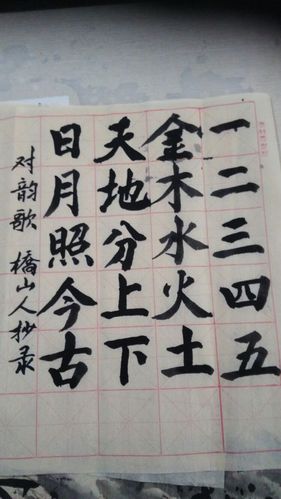 一二三四五
金木水火土
天地分上下
日月照今古
对韵歌 橋山人抄录